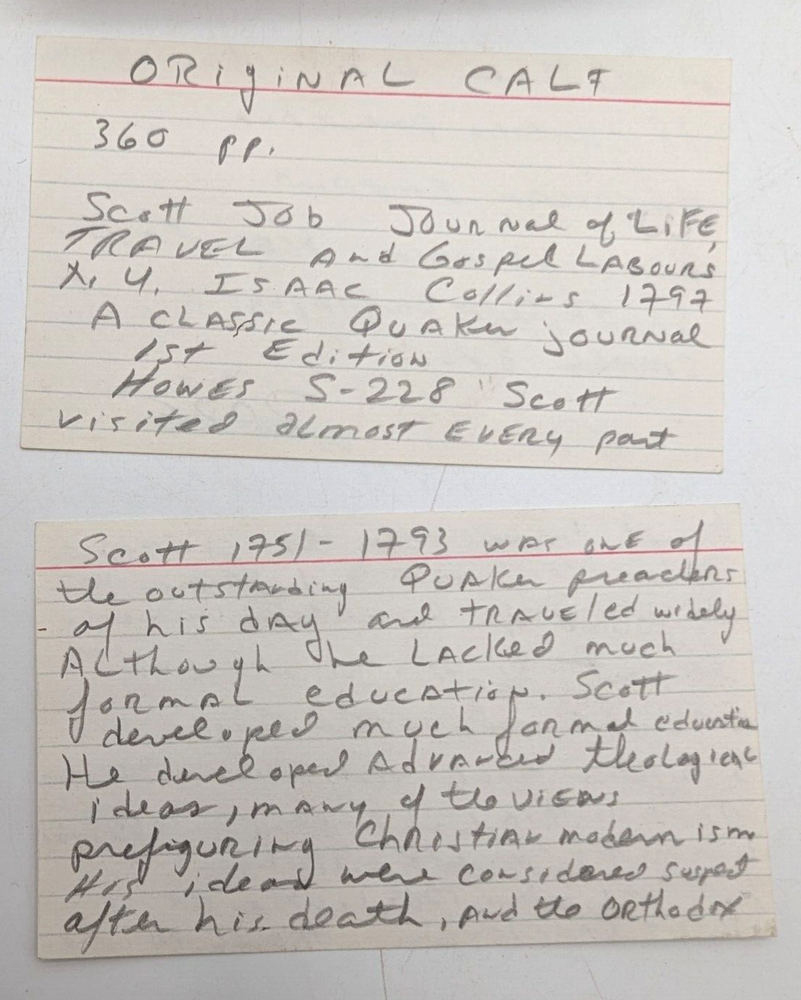 ORIgINAL CALF
360 pp.
Scott Job Journal of LIFE,
TRAVEL And Gospel LABOURS
N. Y. ISAAC Collins 1797
A CLASSIC QUAKer journal
1st Edition
HOWES S-228 "Scott
visited almost EVERY part
Scott 1751-1793 was onE of
the outstanding QUAKer preachers
of his dAy and TRAVEled widely
ALthough he LACKed much
formAL education. Scott
developed much formal education
He developed Advanced theological
ideas, many of the views
prefiguring Christian modernism
His ideas were considered suspect
after his death, And the ORthodox